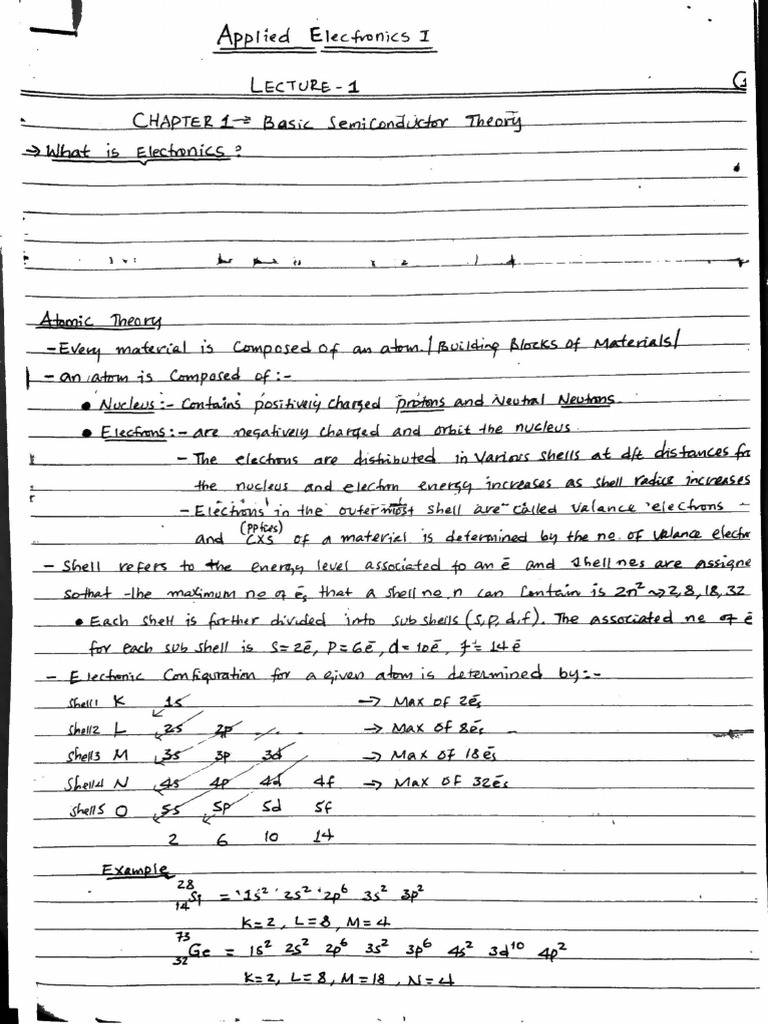 Applied Electronics I
LECTURE - 1
CHAPTER 1 → Basic Semiconductor Theory
→ What is Electronics?
Atomic Theory
- Every material is Composed of an atom. /Building Blocks of Materials/
- an atom is Composed of :-
• Nucleus :- Contains positively charged protons and Neutral Neutrons.
• Electrons :- are negatively charged and orbit the nucleus.
- The electrons are distributed in various shells at d/t distances
the nucleus and electron energy increases as shell radius increases
- Electrons in the outer most shell are called valance electrons -
and (ppties) CXS of a material is determined by the no. of valance
- Shell refers to the energy level associated to an ē and shell nos are
so that the maximum no of ēs that a shell no, n can Contain is 2n² ~> 2, 8, 18, 32
• Each shell is further divided into sub shells (s, p, d, f). The associated no of ē
for each sub shell is S = 2ē, P = 6ē, d = 10ē, f = 14ē
- Electronic Configuration for a given atom is determined by :-
Shell 1 K 1s → Max of 2ēs
Shell 2 L 2s 2p → Max of 8ēs
Shell 3 M 3s 3p 3d → Max of 18ēs
Shell 4 N 4s 4p 4d 4f → Max of 32ēs
Shell 5 O 5s 5p 5d 5f
2 6 10 14
Example
²⁸₁₄Si = 1s² 2s² 2p⁶ 3s² 3p²
K=2, L=8, M=4
⁷³₃₂Ge = 1s² 2s² 2p⁶ 3s² 3p⁶ 4s² 3d¹⁰ 4p²
K=2, L=8, M=18, N=4